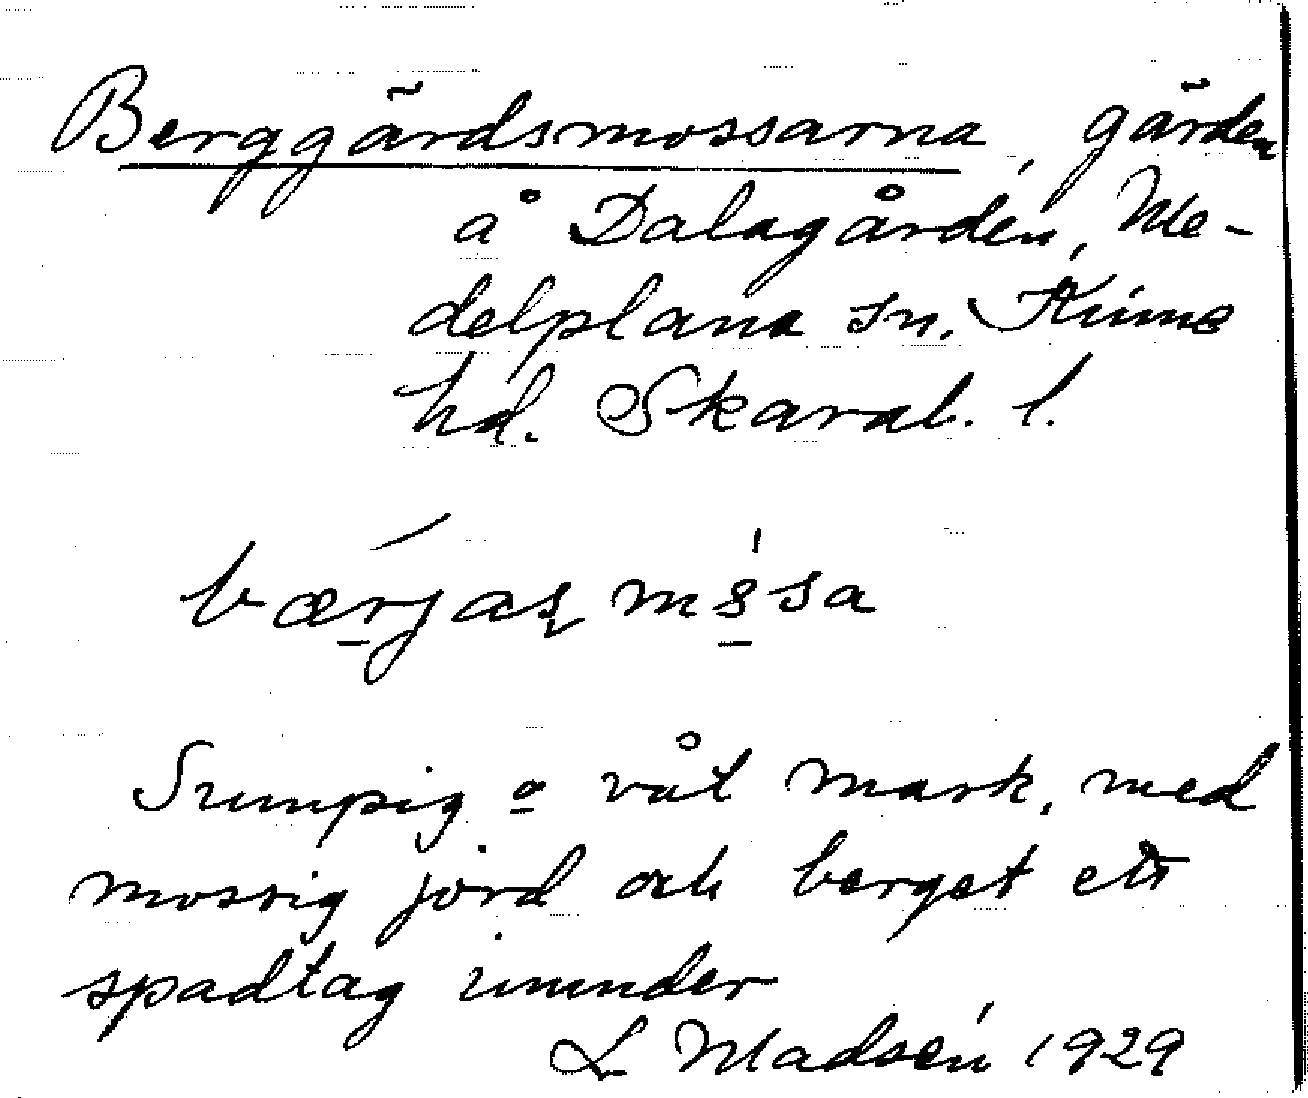 Berggärdsmossarna, gärden
å Dalagården, Me-
delplana sn. Kinne
hd. Skarab. l.
bærjas mssa
Sumpig o våt mark, med
mossig jord och berget ett
spadtag inunder
L Madsén 1929